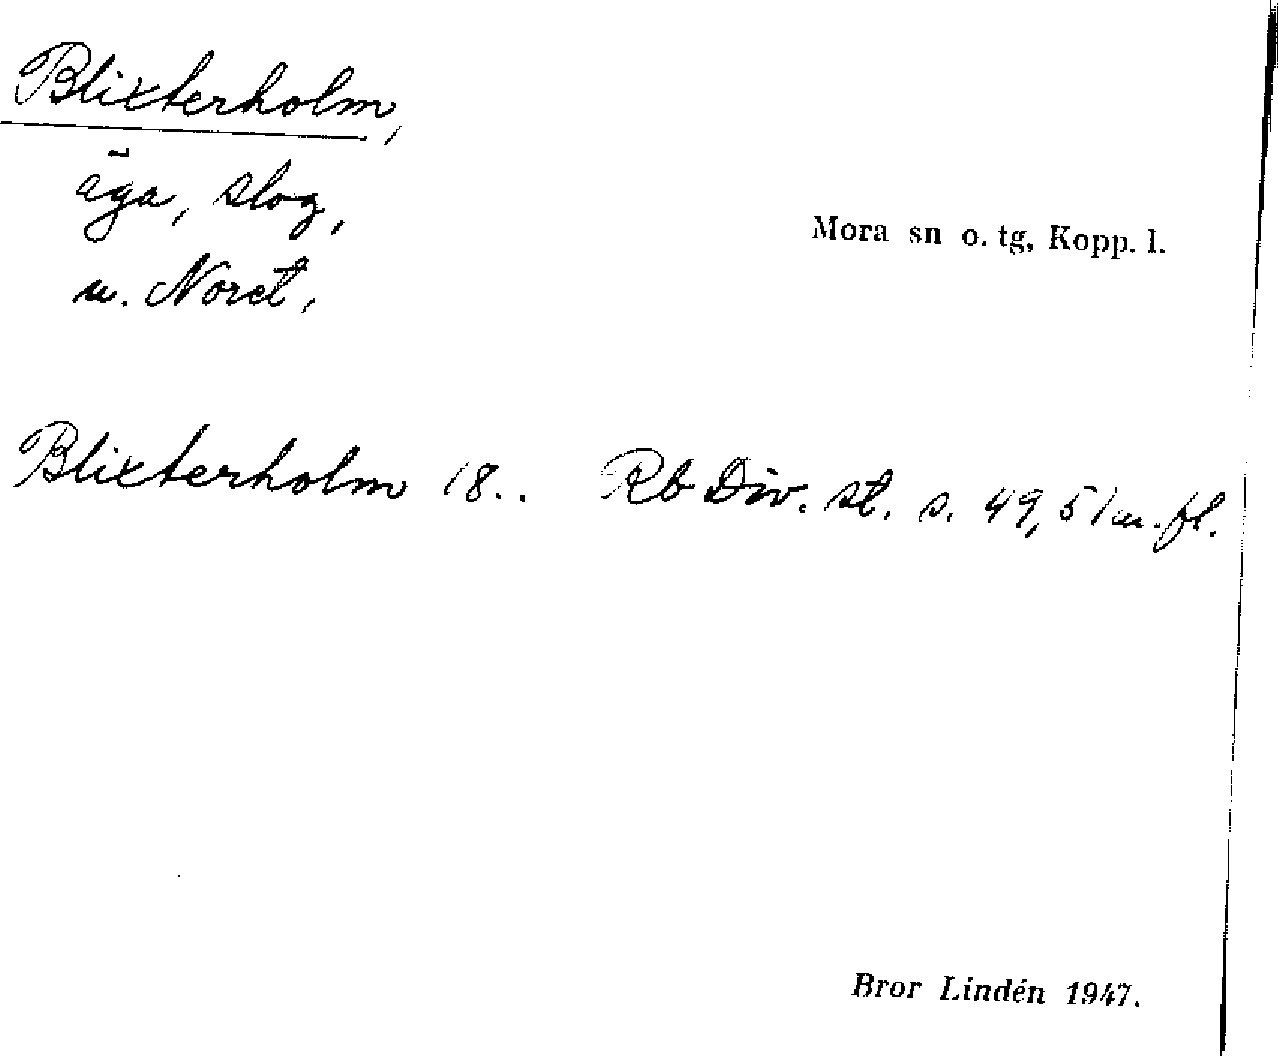 Blixterholm,
äga, slog,
u. Noret,
Mora sn o. tg, Kopp. l.
Blixterholm 18.. Rb Div. st. s. 49, 51 m. fl.
Bror Lindén 1947.